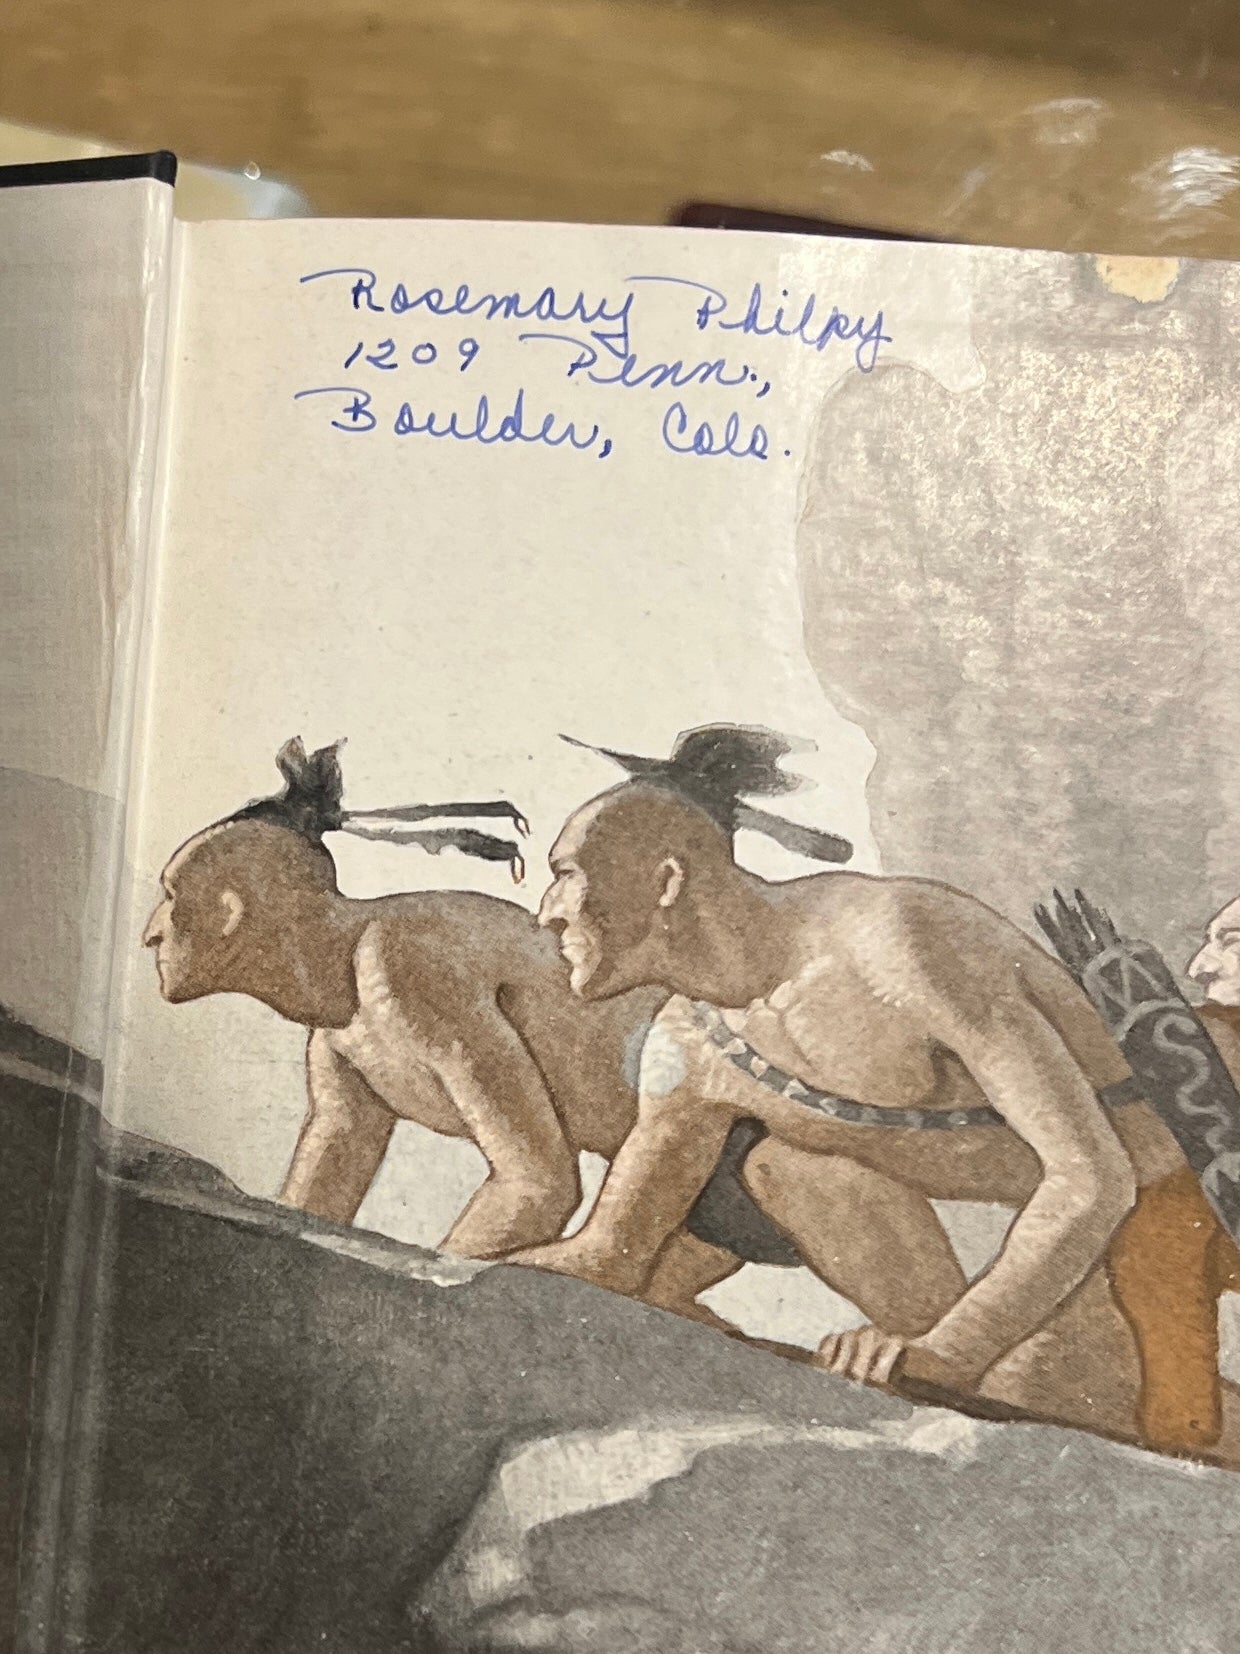 Rosemary Philpy
1209 Penn.,
Boulder, Colo.